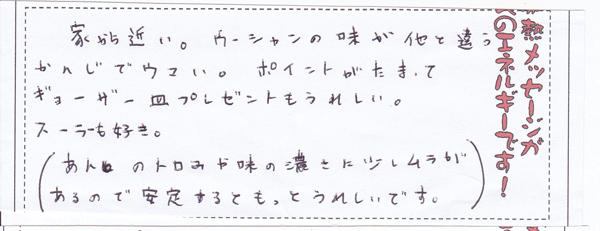 家から近い。ウーシャンの味が他と違う
かんじでウマい。ポイントがたまって
ギョーザ一皿プレゼントもうれしい。
スーラーも好き。
(あんのトロみや味の濃さに少しムラが
あるので安定するともっとうれしいです。)
熱メッセージが
のエネルギーです！